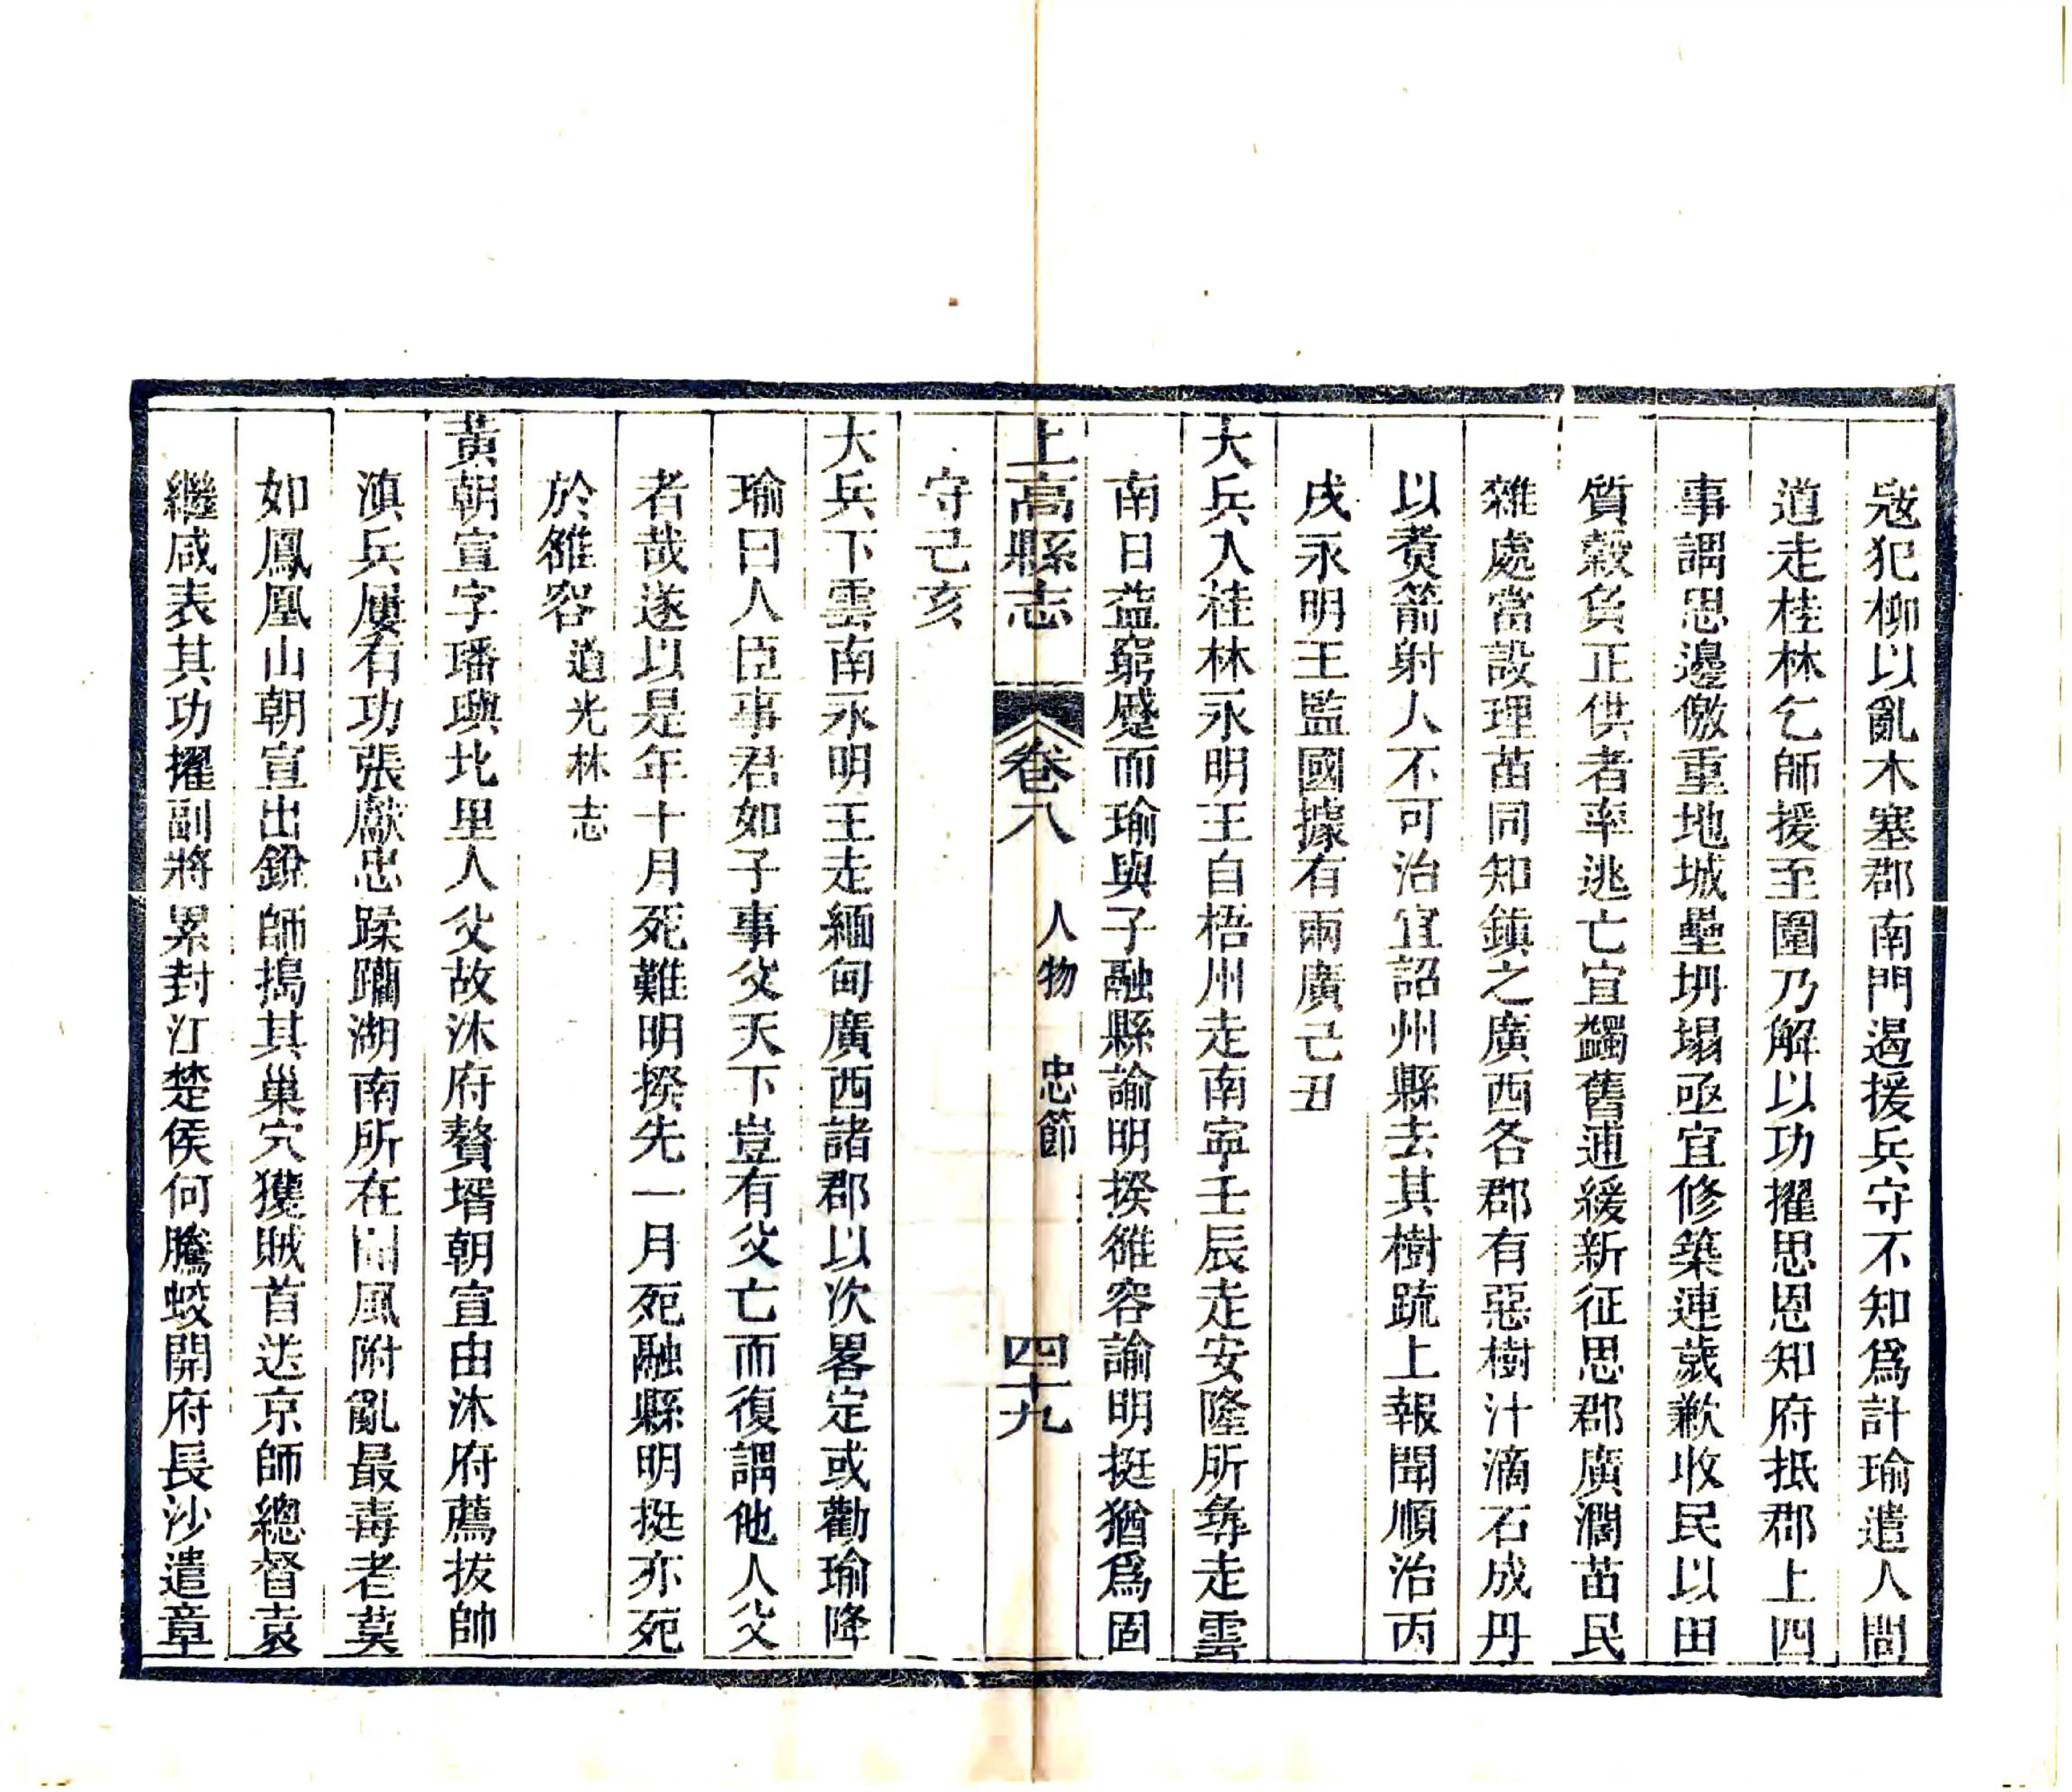 寇犯柳以亂木塞郡南門遏援兵守不知爲計瑜遣人間
道走桂林乞師援至圍乃解以功擢思恩知府抵郡上四
事謂思邊徼重地城壘坍塌亟宜修築連歲歉收民以田
質穀負正供者率逃亡宜蠲舊逋緩新征思郡廣濶苗民
雜處當設理苗同知鎮之廣西各郡有惡樹汁滴石成丹
以煑箭射人不可治宜詔州縣去其樹䟽上報聞順治丙
戌永明王監國據有兩廣己丑
大兵入桂林永明王自梧州走南寧壬辰走安隆所彝走雲
南日益窮蹙而瑜與子融縣諭明揆雒容諭明挺猶爲固
上高縣志 卷八 人物 忠節 四十九
守己亥
大兵下雲南永明王走緬甸廣西諸郡以次畧定或勸瑜降
瑜曰人臣事君如子事父天下豈有父亡而復謂他人父
者哉遂以是年十月死難明揆先一月死融縣明挺亦死
於雒容道光林志
黃朝宣字璠璵北里人父故沐府贅壻朝宣由沐府薦拔帥
滇兵屢有功張獻忠蹂躪湖南所在聞風附亂最毒者莫
如鳳凰山朝宣出銳師搗其巢穴獲賊首送京師總督袁
繼咸表其功擢副將累封江楚侯何騰蛟開府長沙遣章